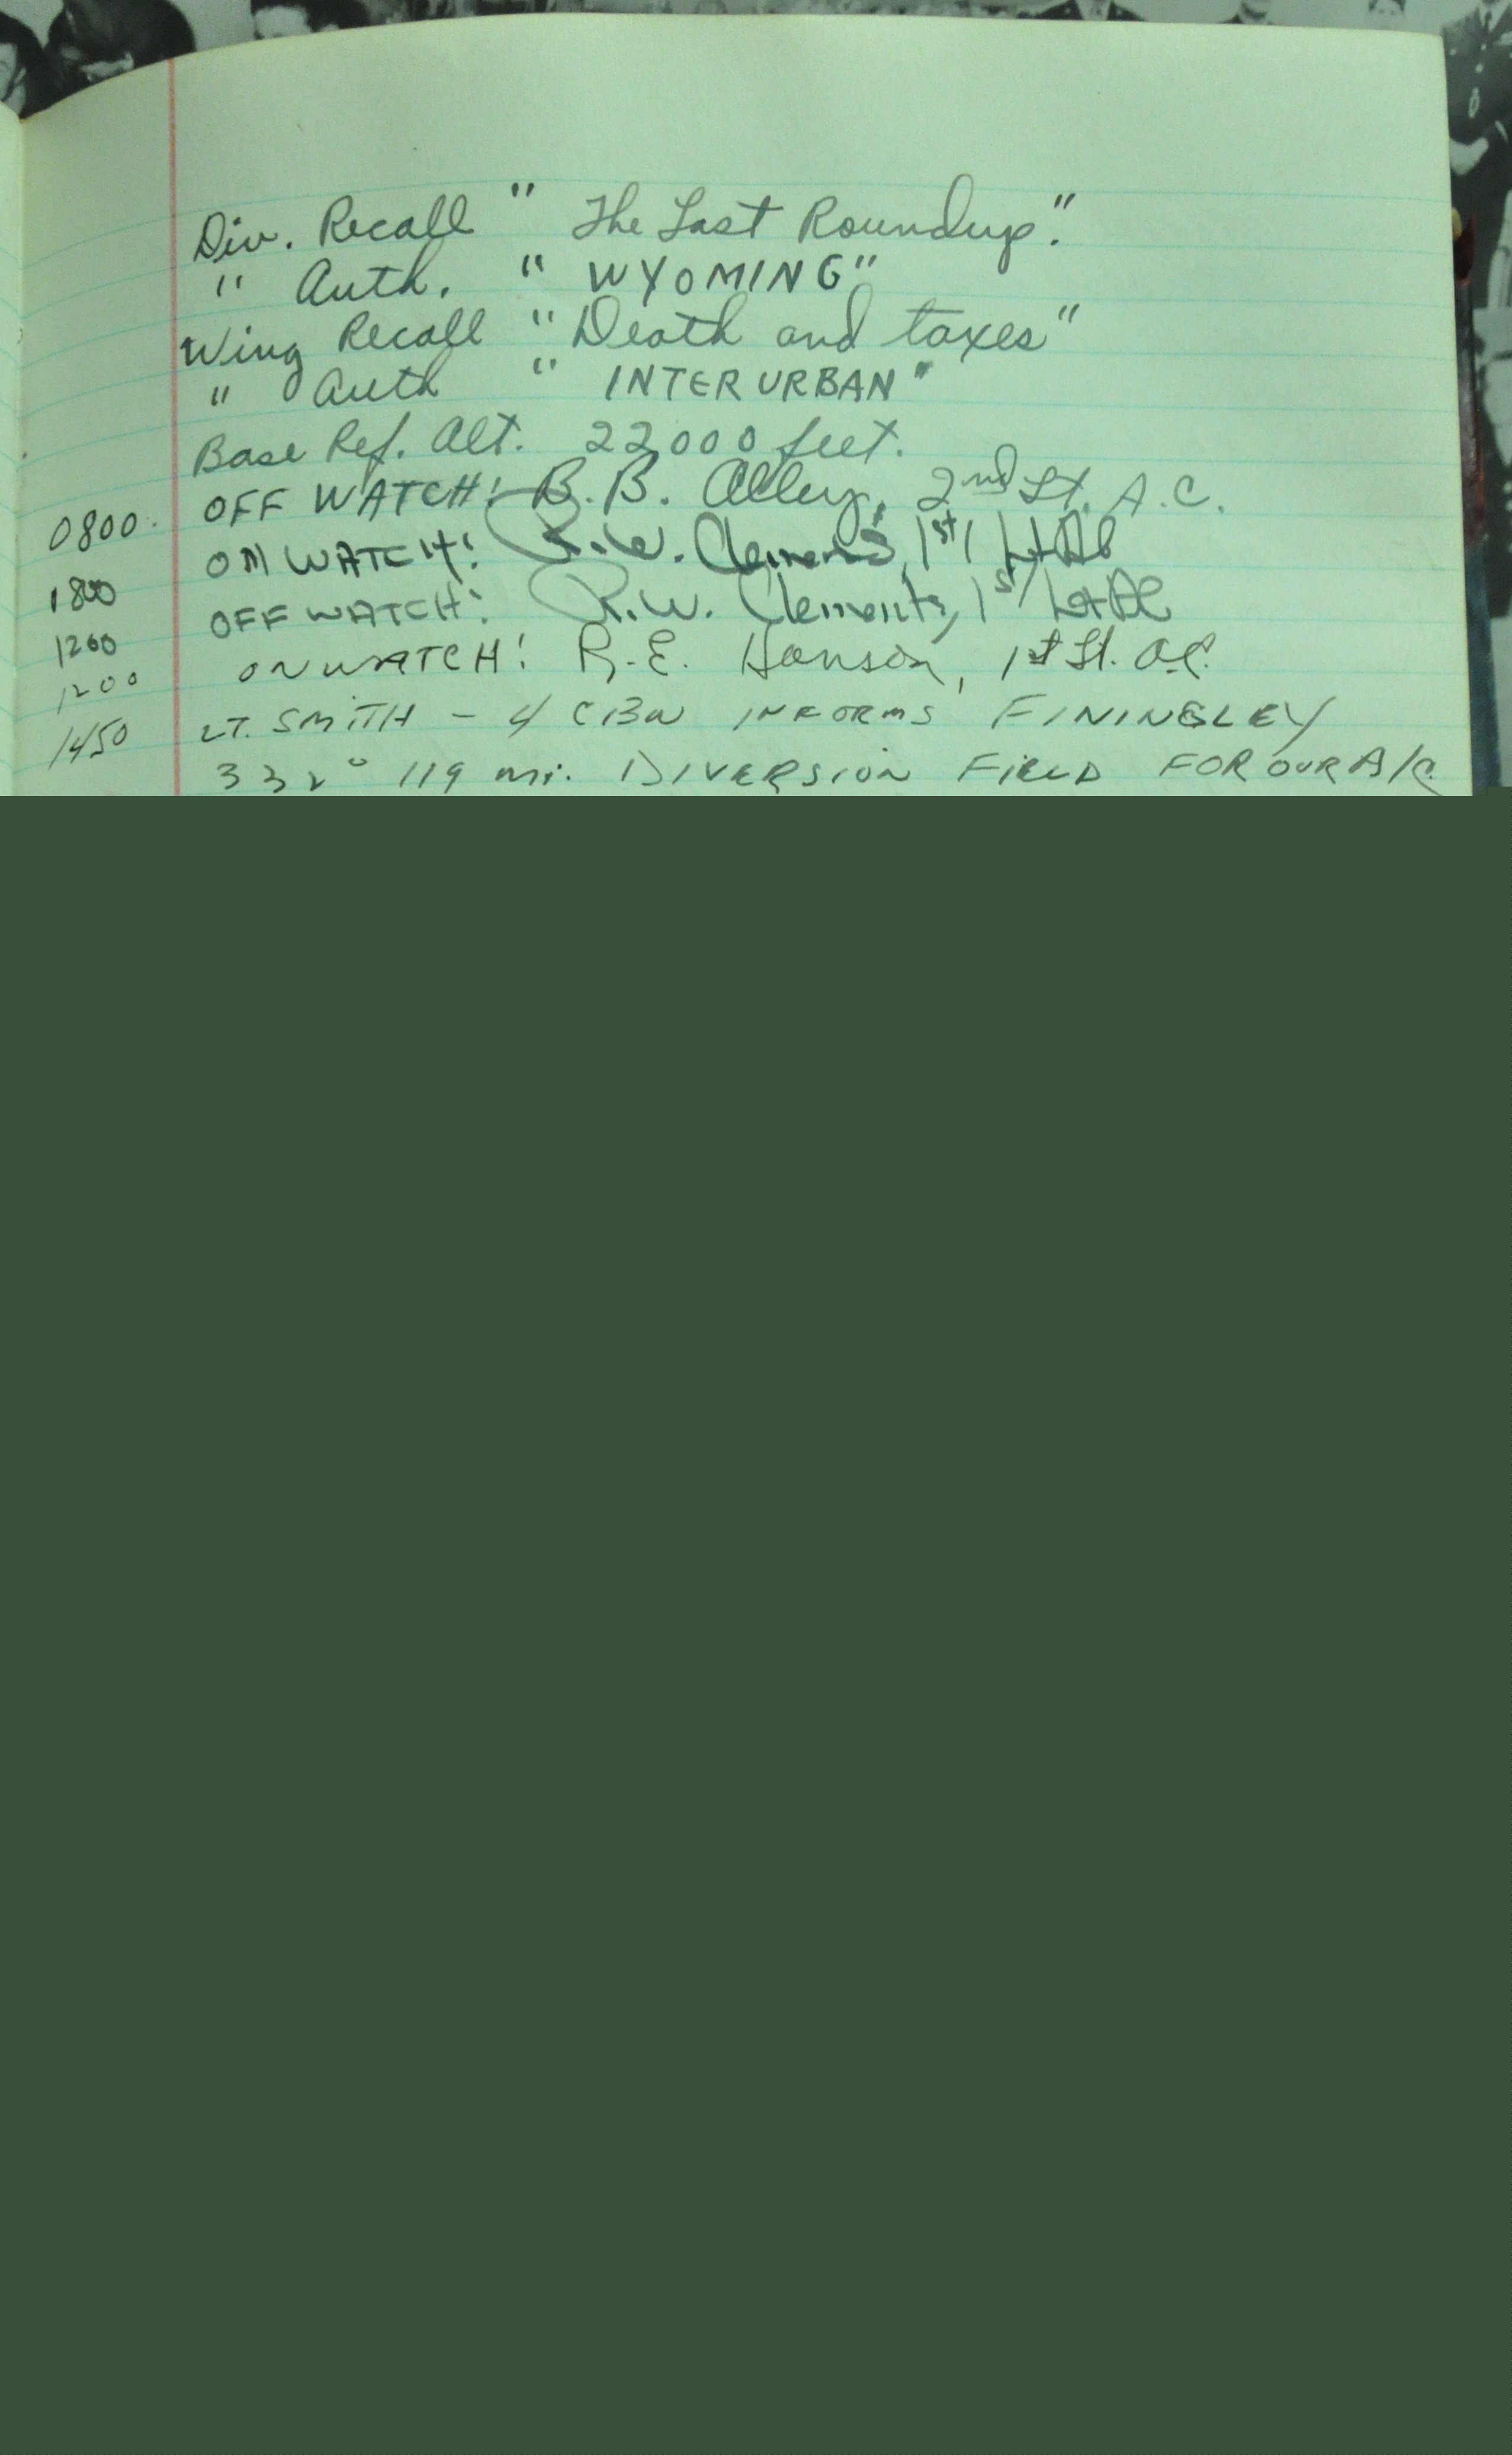 Div. Recall " The Last Roundup."
" Auth. " WYOMING"
Wing Recall " Death and taxes"
" Auth " INTERURBAN"
Base Ref. Alt. 22000 feet.
0800. OFF WATCH: B. B. Alley, 2nd Lt. A.C.
ON WATCH: R.W. Clements, 1st Lt AC
1200 OFF WATCH: R.W. Clements, 1st Lt AC
1200 ON WATCH: R.E. Hanson, 1st Lt. A.C.
1450 LT. SMITH - 4 CBW INFORMS FININGLEY
332° 119 mi. DIVERSION FIELD FOR OUR A/C.